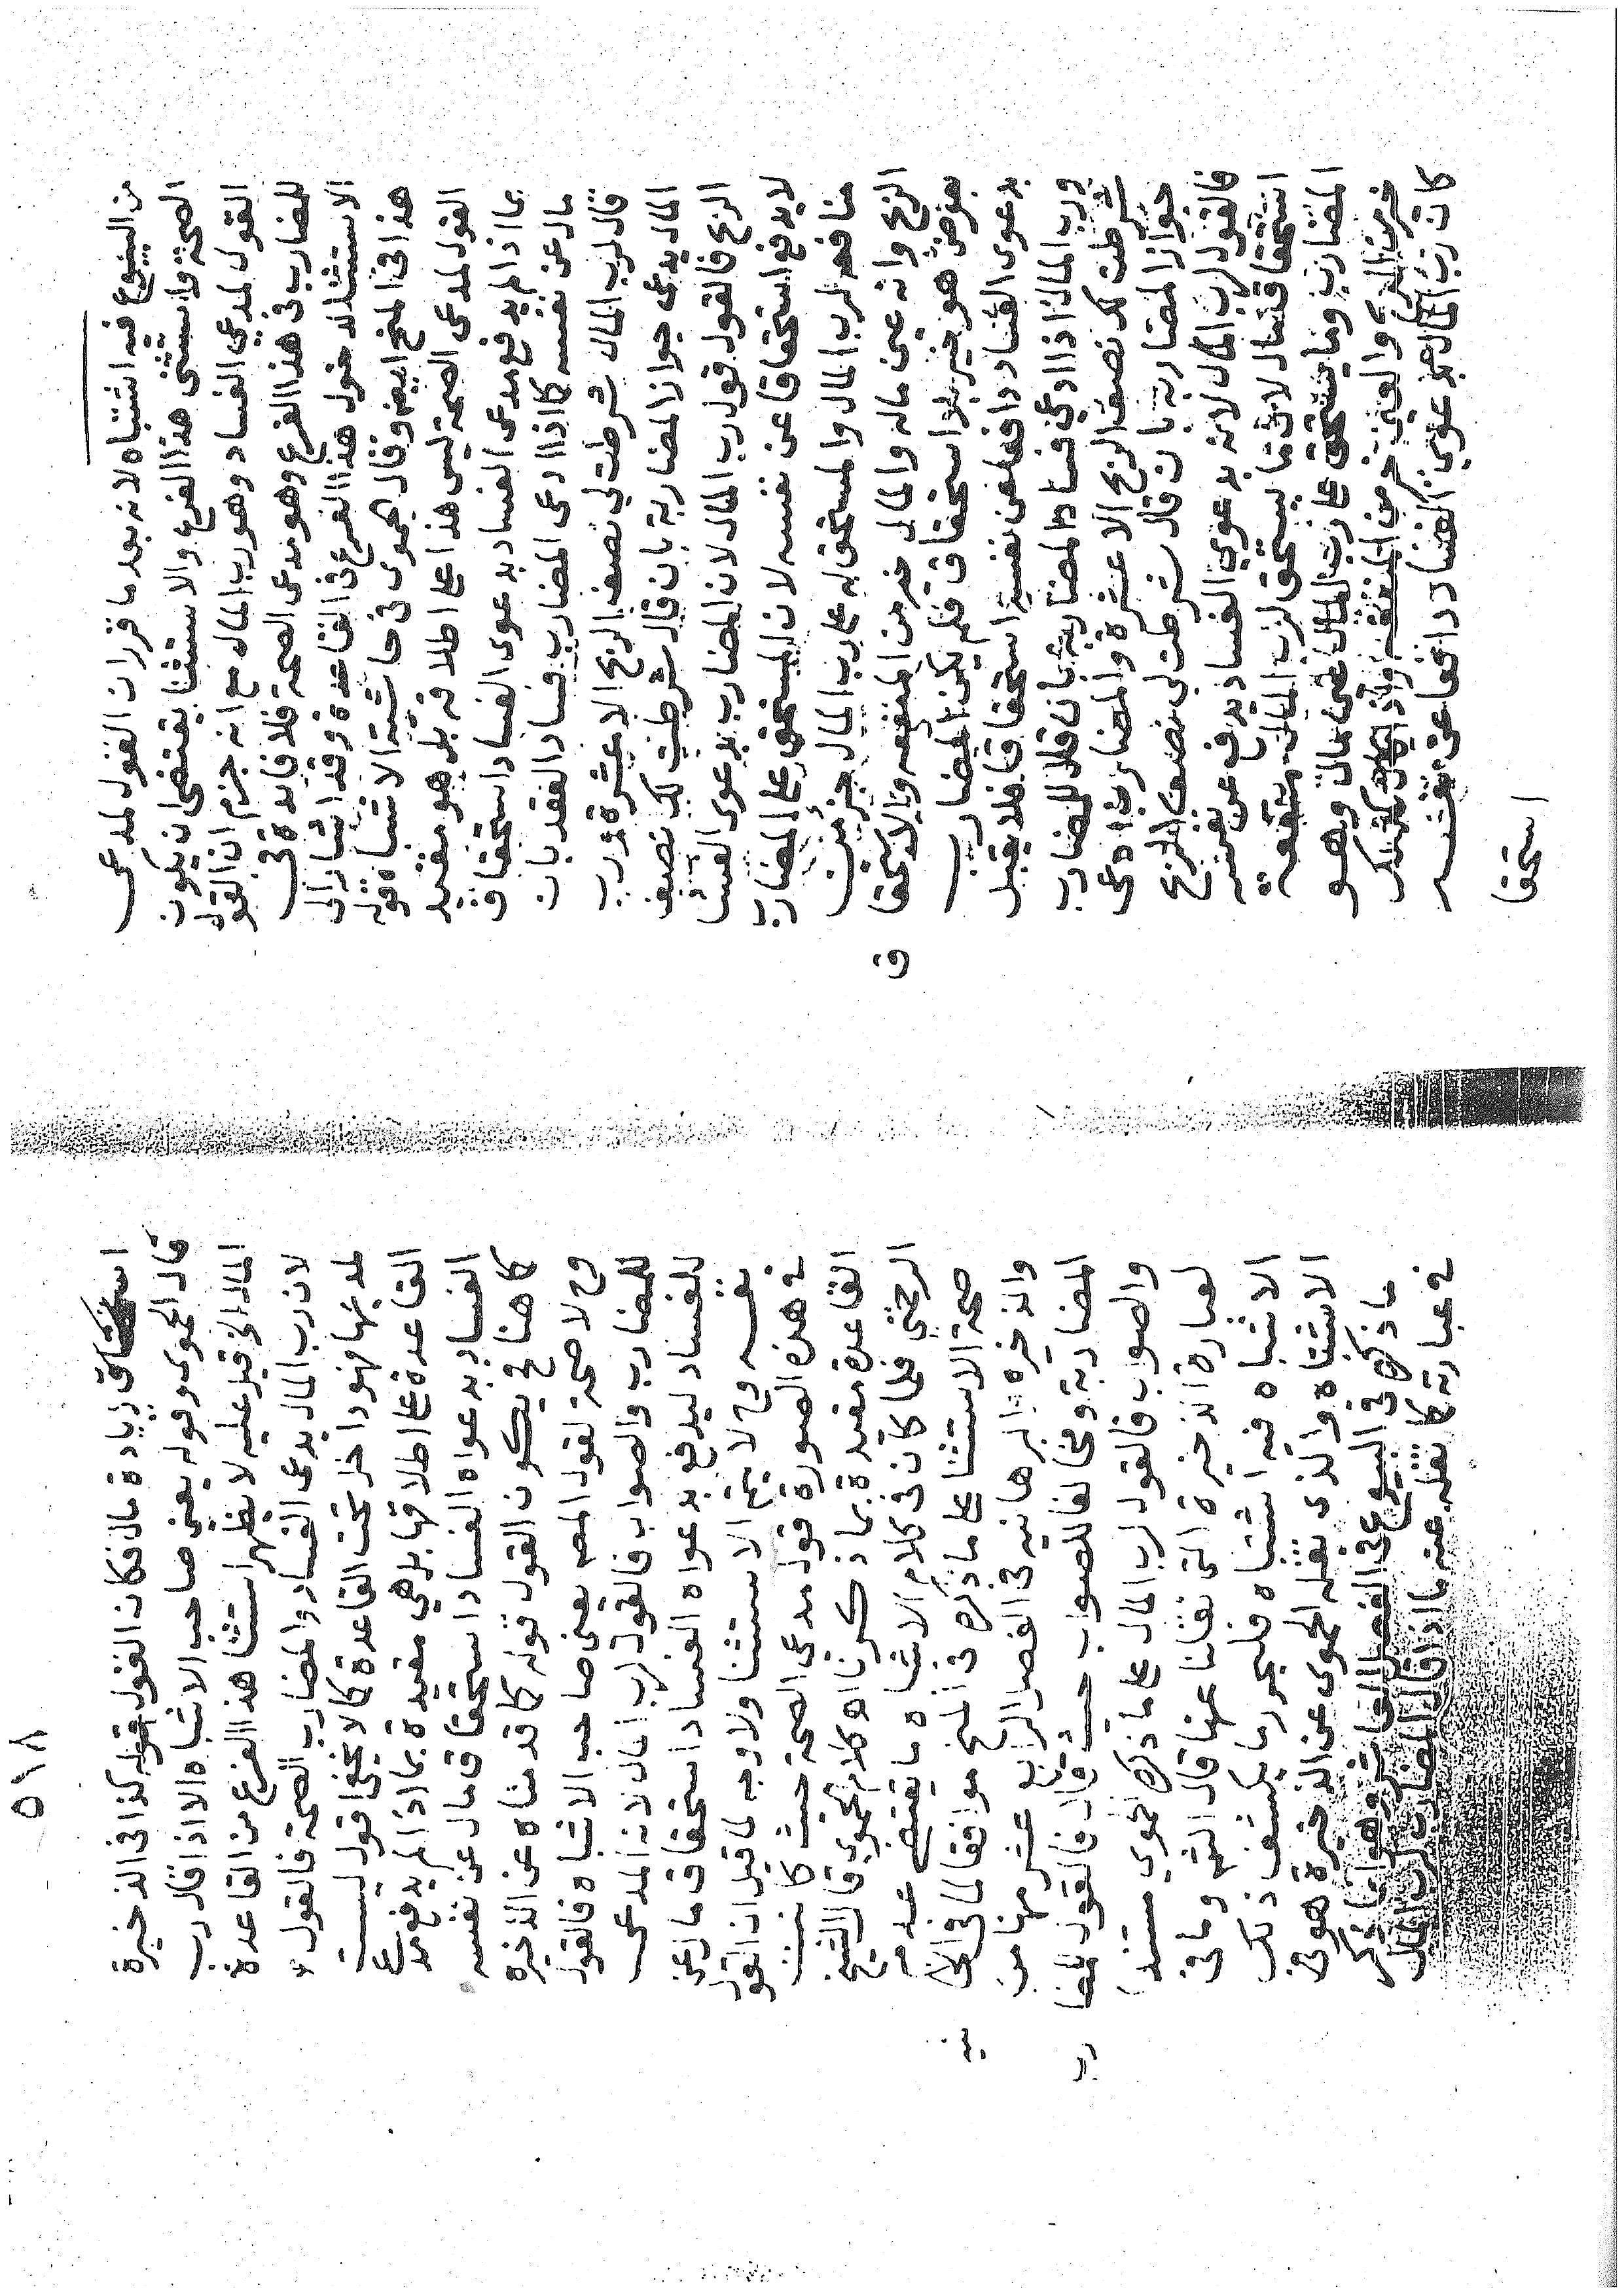 من البيوع فيه اشتباه لانه بعد ما قرر ان القول لمدعى
الصحة واستثنى هذا الفرع والاستثنا يقتضى ان يكون
القول لمدعي الفساد وهو رب المال مع انه جزم ان القول
للمضارب فى هذا الفرع وهو مدعى الصحة فلا فايدة فى
الاستثنا لدخول هذا الفرع فى القاعدة وقد اشار الى
هذا فى المنح ايضا وقال الحموى فى حاشية الاشباه قوله
القول لمدعى الصحة ليس هذا على اطلاقه بل هو مقيد
بما اذا لم يدفع مدعى الفساد بدعوى الفساد استحقاق
مال عن نفسه كما اذا ادعى المضارب فساد العقد بان
قال لرب المال شرطت لى نصف الربح الا عشرة ورب
المال يدعى جواز المضاربة بان قال شرطت لك نصف
الربح فالقول قول رب المال لان المضارب بدعوى الفسا
لا يدفع استحقاقا عن نفسه لان المستحق على المضارب
منافعه لرب المال والمستحق له على رب المال جزء من
الربح وانه عين ماله والمال خير من المنفعه والاستحقا
ق
بعوض هو خير بلا استحقاق فلم يكن المضارب
بدعوى الفساد دافعا عن نفسه استحقاقا فلا يقبل
ورب المال اذا ادعى فساد المضاربة بان قال للمضارب
شرطت لك نصف الربح الا عشرة والمضارب ادعى
جواز المضاربة بان قال شرطت لى نصف الربح
فالقول لرب المال لانه بدعوى الفساد يدفع عن نفسه
استحقاق مال لان ما يستحق لرب المال منفعة
المضارب وما يستحق على رب المال عين مال وهو
جزء من الربح والعين خير من المنفعه واذا كان كذلك
كان رب المال بدعوى الفساد دافعا عن نفسه
استحقا
٥١٨
استحقاق زيادة مال فكان القول قوله كذا فى الذخيرة
قال الحموى وقوله يعنى صاحب الاشباه الا اذا قال رب
المال الخ قيل عليه لا يظهر استثنا هذا الفرع من القاعدة
لان رب المال يدعى الفساد والمضارب الصحة فالقول
لمدعيها فهو داخل تحت القاعدة كما لا يخفى اقول ليست
القاعدة على اطلاقها بل هي مقيدة بما اذا لم يدفع مدعى
الفساد بدعواه الفساد استحقاق مال عن نفسه
كما هنا فيكون القول قوله كما قدمناه عن الذخيرة
وح لا صحة لقول المص يعنى صاحب الاشباه فالقول
للمضارب والصواب فالقول لرب المال لانه المدعى
للفساد ليدفع بدعواه الفساد استحقاق مال عن
نفسه وح لا يتم الاستثنا ولا وجه لما قيل ان القول
فى هذه الصورة قول مدعى الصحة حيث كانت
القاعدة مقيدة بما ذكرنا اه كلام الحموى قال الشيخ
الرحمتى فلما كان فى كلام الاشباه ما يقتضى عدم
صحة الاستثنا على ما ذكره فى المنح موافقا لما فى الخا
نيه
والذخيره البرهانيه فى الفصل الرابع عشر منها من
المضاربة ومخالفا للصواب حيث قال فالقول للمضا
رب
والصواب فالقول لرب المال على ما ذكره الحموي مستندا
لعبارة الذخيرة التى نقلنا عنها قال الشه وما فى
الاشباه فيه اشتباه فليحرر ما يكشف ذلك
الاشتباه والذى نقله الحموى عن الذخيرة هو فى
ما ذكره فى البيوع فى الفصل العاشر وهو انما ذكر
فى عبارته كما نقله عنه ما اذا قال المضارب لرب المال